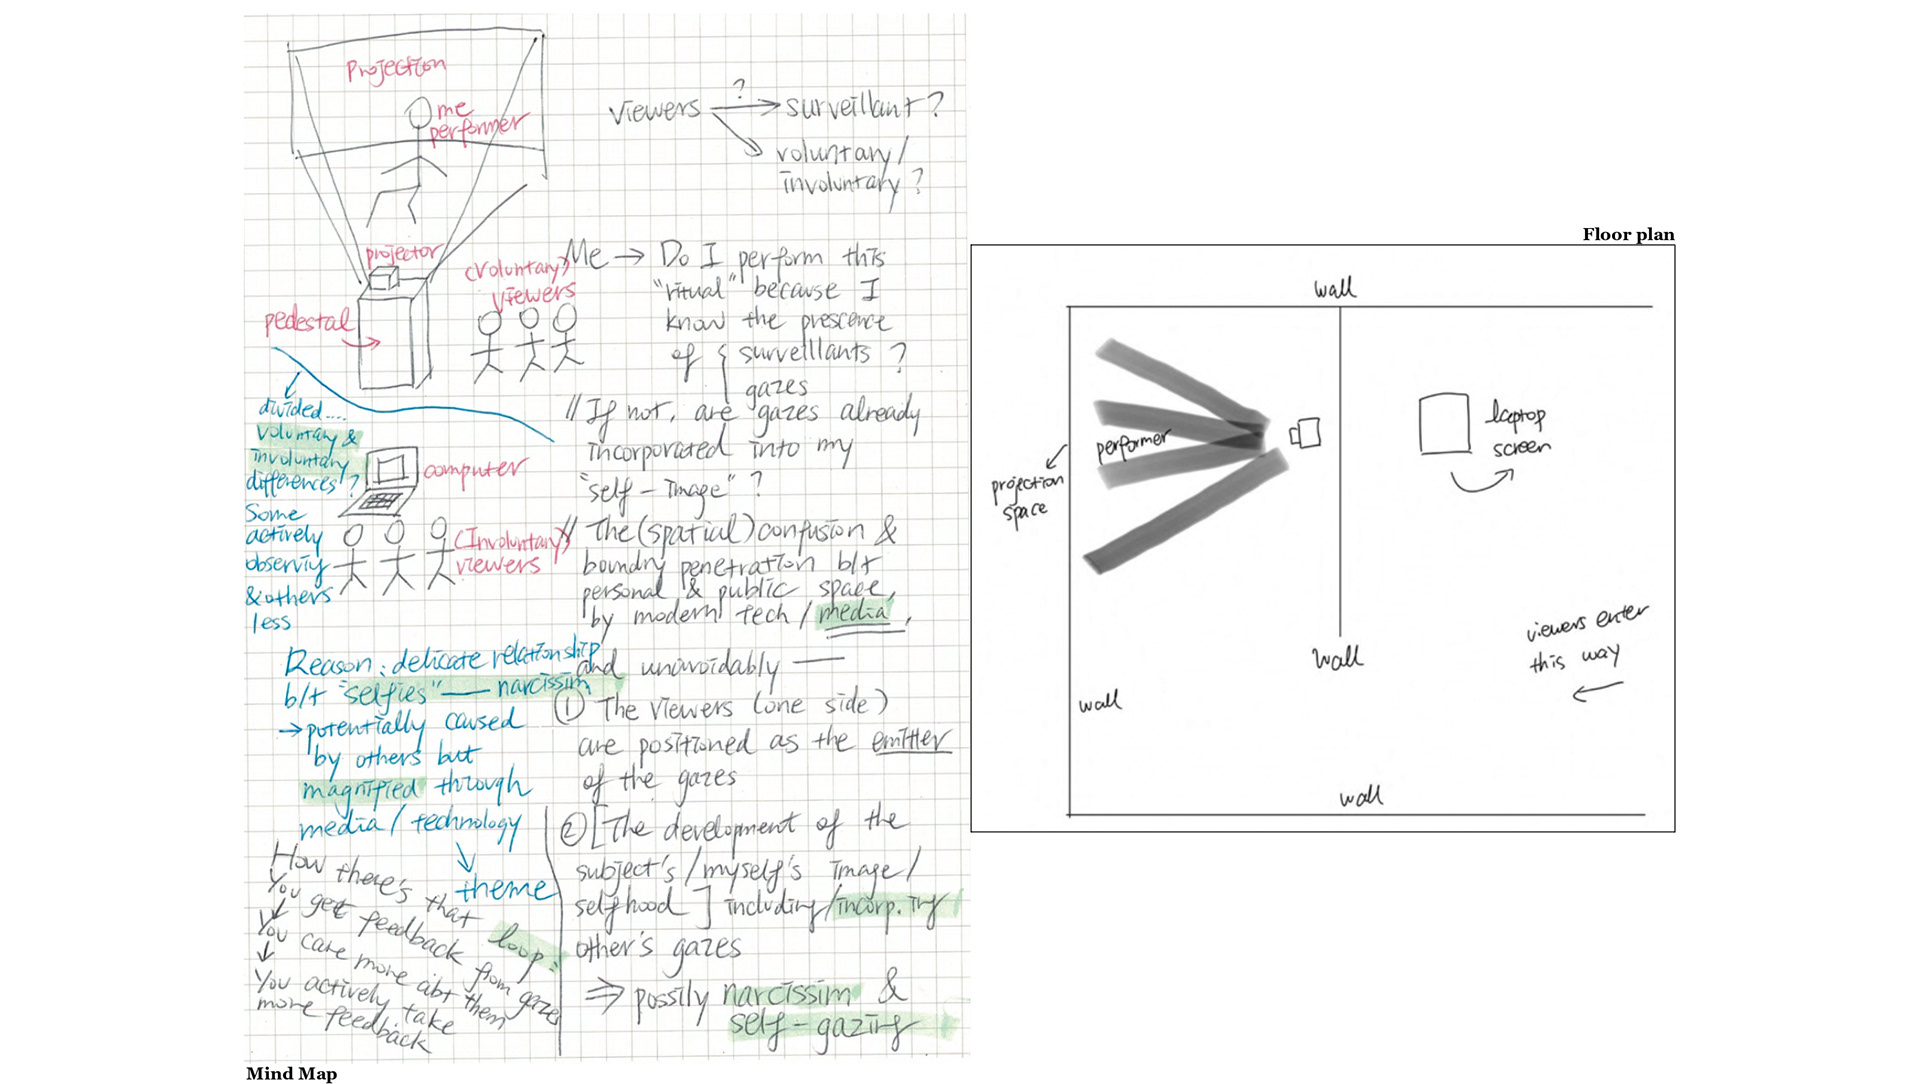 Projection
me
performer
projector
pedestal
(Voluntary)
viewers
Viewers ? surveillant?
voluntary/
involuntary?
Me → Do I perform this
"ritual" because I
know the prescence
of { surveillants ?
gazes
// If not, are gazes already
incorporated into my
"self-image"?
// The (spatial) confusion &
boundry penetration b/t
personal & public space,
by modern tech / media,
and unavoidably —
① The viewers (one side)
are positioned as the emitter
of the gazes
② [The development of the
subject's/myself's image/
selfhood] including/incorp.ing
other's gazes
⇒ possily narcissim &
self-gazing
divided....
voluntary &
involuntary
differences?
Some
actively
observing
& others
less
computer
(Involuntary)
viewers
Reason: delicate relationship
b/t "selfies" — narcissim
→ potentially caused
by others but
magnified through
media / technology
theme
How there's that loop:
You get feedback from gazes
↓
You care more abt them
↓
You actively take
more feedback
Mind Map
Floor plan
wall
performer
projection
space
laptop
screen
wall
viewers enter
this way
wall
wall